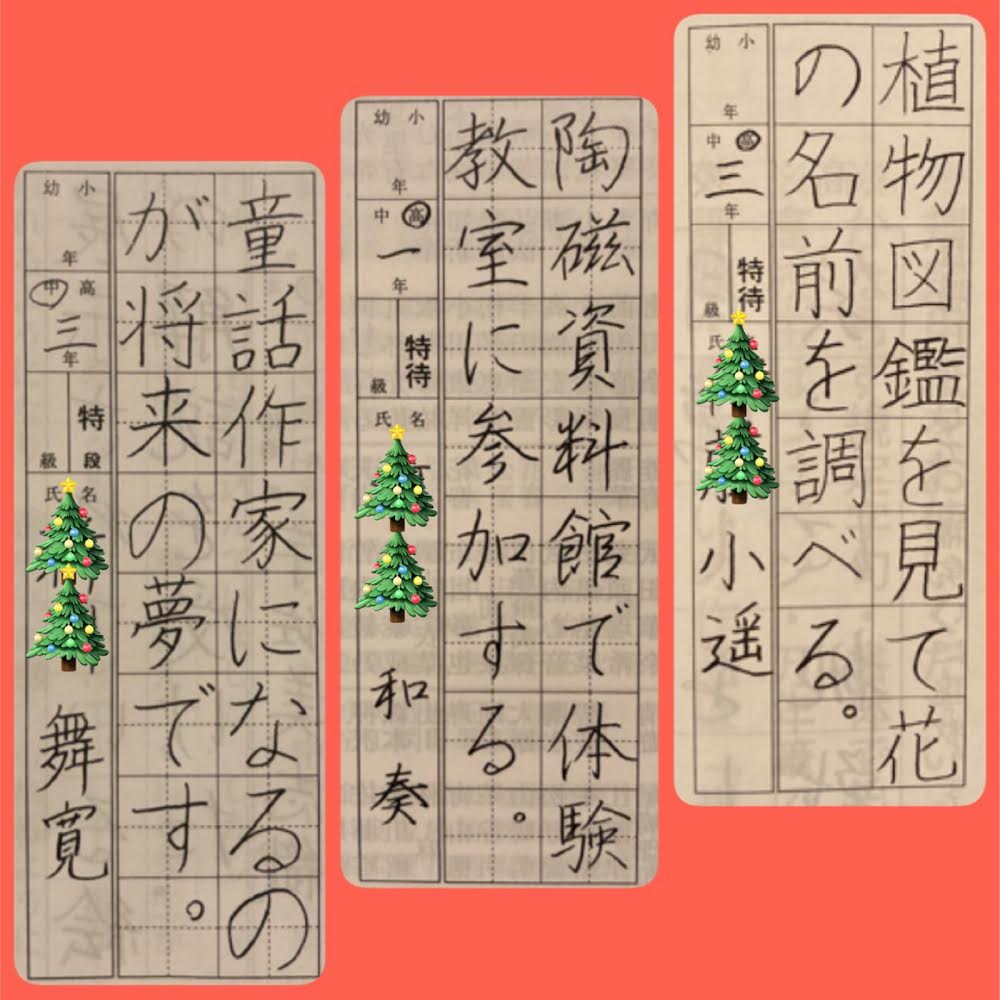 植物図鑑を見て花
の名前を調べる。
幼 小
年
中 高
三
年
特待
級
氏
小遥
陶磁資料館で体験
教室に参加する。
幼 小
年
中 高
一
年
特待
級
氏 名
和奏
童話作家になるの
が将来の夢です。
幼 小
年
中 高
三
年
特
段
級
氏 名
舞寛